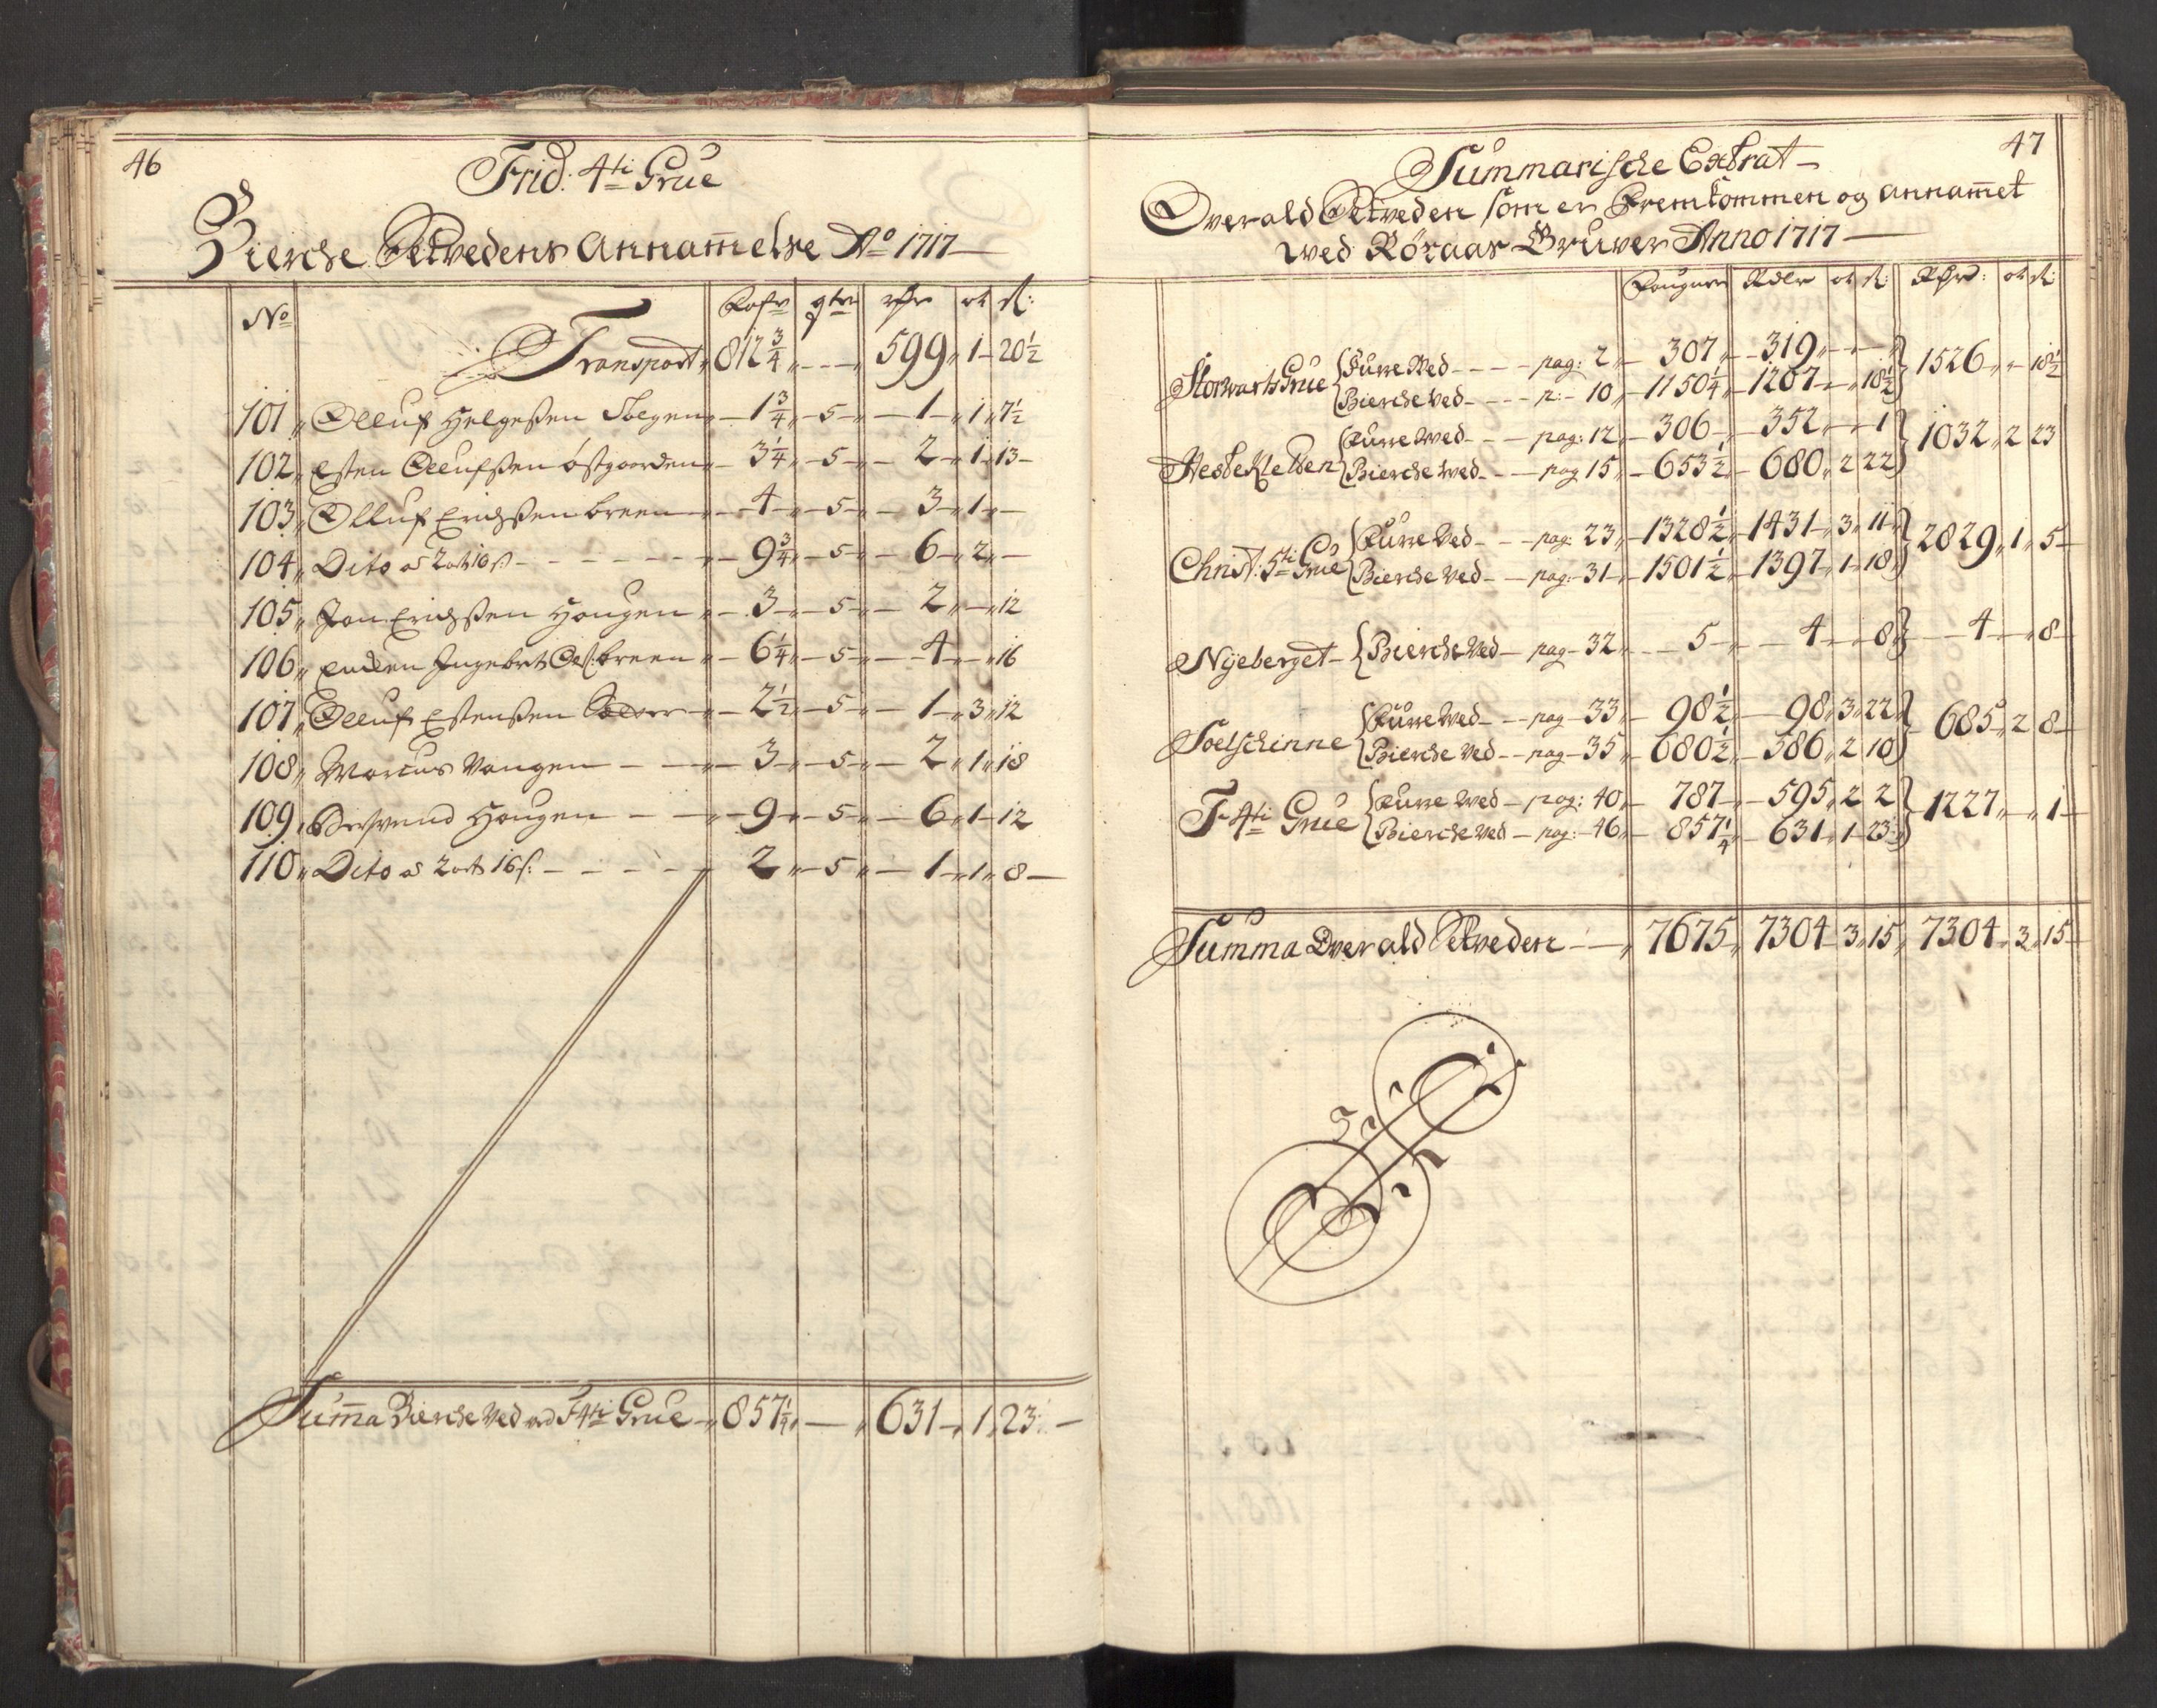 46
Frid: 4ti Grue
Bierche Setvedens Annam̄else Ao 1717
No Fafn qtr rdr ort ß:
Transport 812 3/4 599 1 20 1/2
101 Olluf Helgeßen 1 3/4 5 1 1 7 1/2
102 Esten Ollufsen Østgaarden 3 1/4 5 2 1 13
103 Olluf Erichsen breen 4 5 3 1
104 Dito a 2 ort 16 ß 9 3/4 5 6 2
105 Jon Erichsen Hougen 3 5 2 12
106 Ingebrt breen 6 1/4 5 4 16
107 Olluf Estensen 2 1/2 5 1 3 12
108 Marcus Vangen 3 5 2 1 18
109 Hougen 9 5 6 1 12
110 Dito a 2 ort 16 ß: 2 5 1 1 8
Sum̄a Bierche Ved ved F 4ti Grue 857 1/4 631 1 23
47
Summarische Extrat
Overald Setveden som er Fremkommen og annam̄et
wed Röraas Gruver Anno 1717
Faugner Rdlr ort ß: Rdr: ort ß
Storvarts Grue { Furre Ved pag: 2 307 319 } 1526 18 1/2
Bierche Ved p: 10 1150 1/4 1207 18 1/2
Hestekletten { Furre Wed pag: 12 306 352 1 } 1032 2 23
Bierche Wed pag 15 653 1/2 680 2 22
Christ: 5ti Grue { Furre Ved pag: 23 1328 1/2 1431 3 11 } 2829 1 5
Bierche Ved pag: 31 1501 1/2 1397 1 18
Nyeberget { Bierche Ved pag 32 5 4 8 } 4 8
Soelschinne { Furre Wed pag 33 98 1/2 98 3 22 } 685 2 8
Bierche Ved pag 35 680 1/2 586 2 10
F 4ti Grue { Furre Wed pag: 40 787 595 2 2 } 1227 1
Bierche Ved pag: 46 857 1/4 631 1 23
Summa Overald Setveden 7675 7304 3 15 7304 3 15